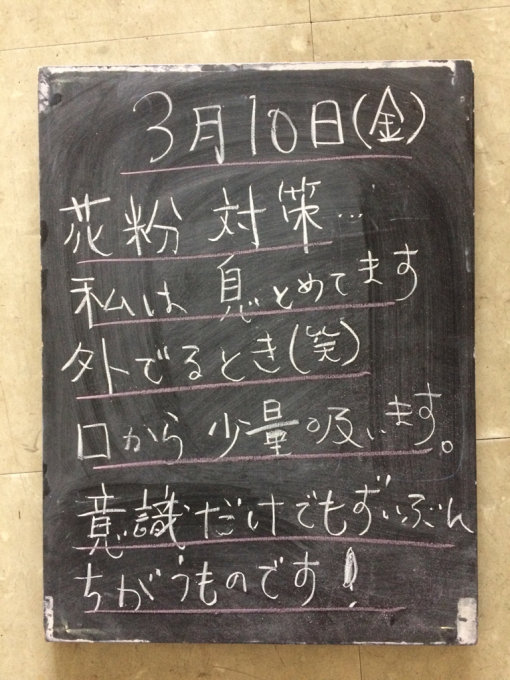 3月10日(金)
花粉対策…
私は息とめてます
外でるとき(笑)
口から少量吸います。
意識だけでもずいぶん
ちがうものです!